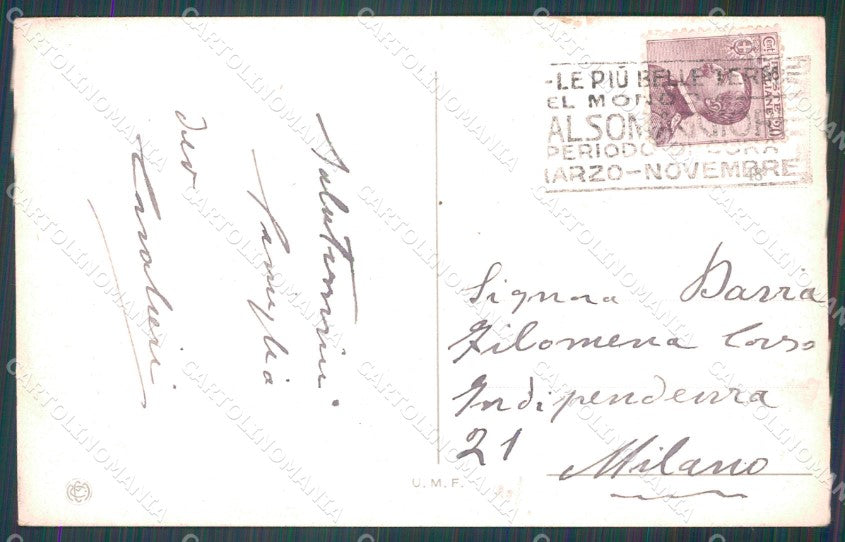 Saluti
famiglia
Cavalieri
-LE PIÙ BELLE TERME
EL MONDO
ALSOMAGGIORE
PERIODO CURA
IARZO-NOVEMBRE
Cent. 20
Signora Barra
Filomena Corso
Indipendenza
21
Milano
U. M. F.
CARTOLINOMANIA